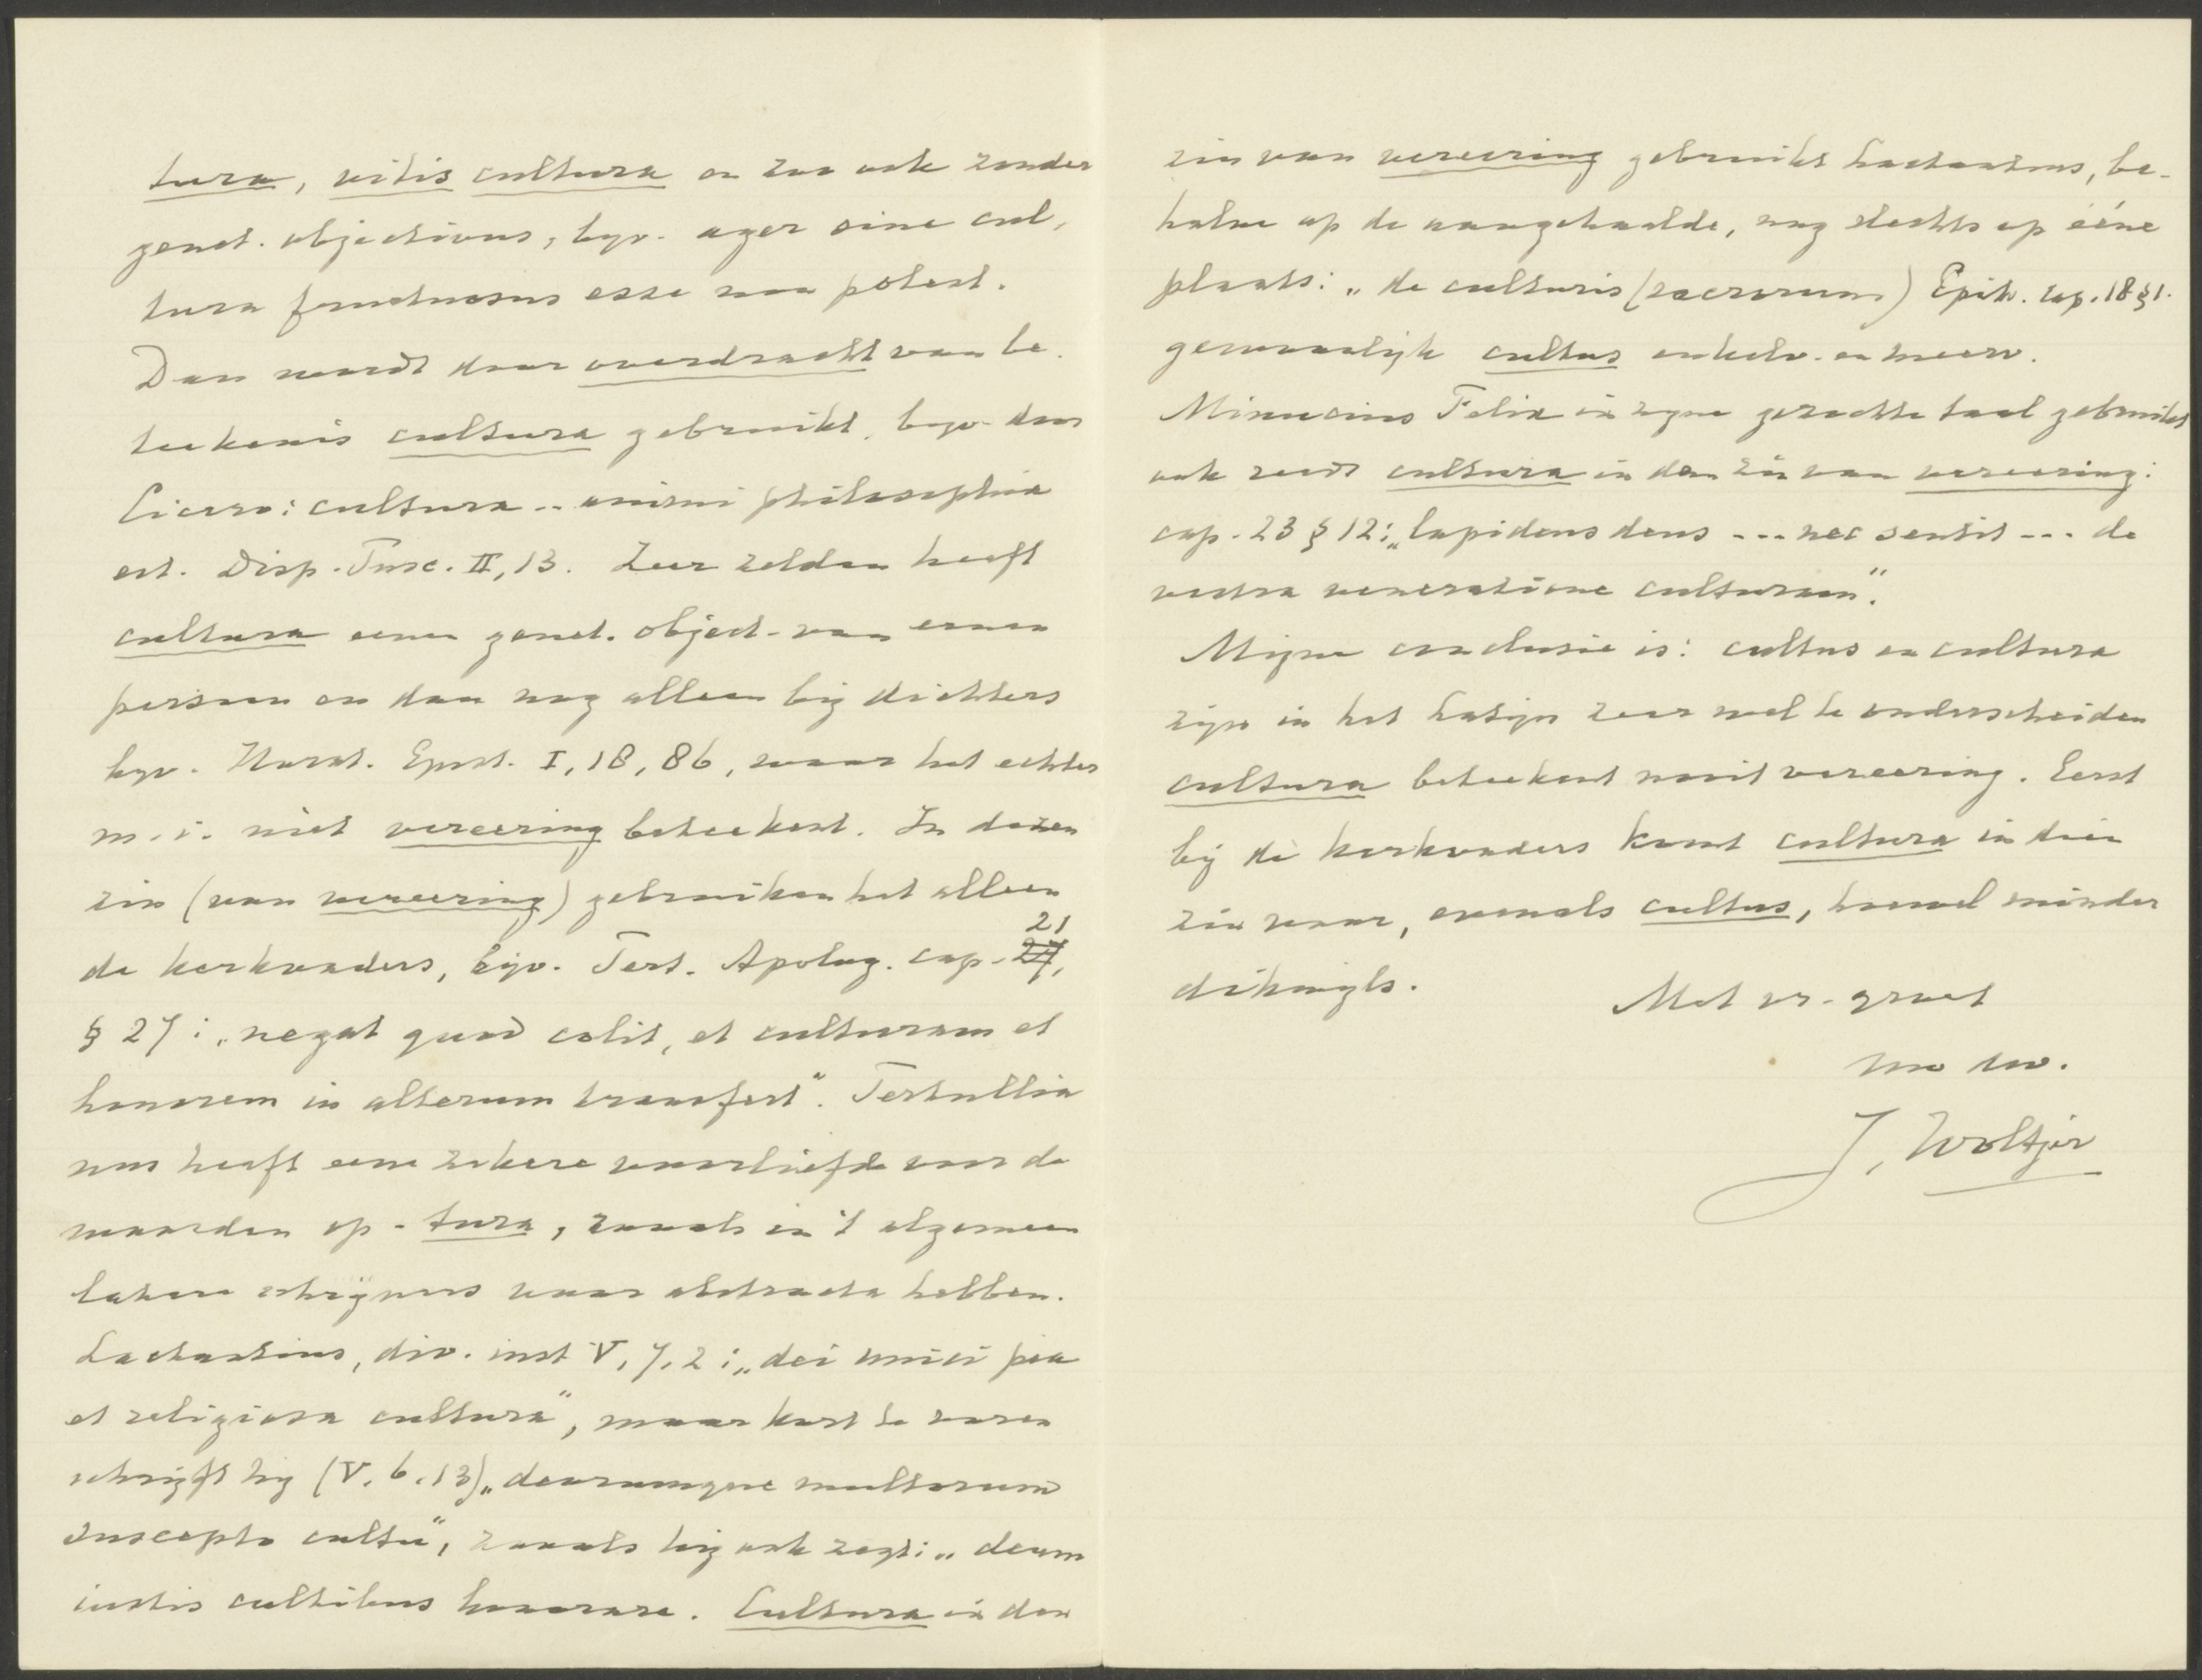 tura, vitis cultura en zoo ook zonder
genet. objectivus, bijv. ager sine cul-
tura fructuosus esse non potest.
Dan wordt door overdracht van be-
teekenis cultura gebruikt, bijv. door
Cicero: cultura .. animi philosophia
est. Disp. Tusc. II, 13. Zeer zelden heeft
cultura eenen genet. object. van eenen
persoon en dan nog alleen bij dichters
bijv. Horat. Epist. I, 18, 86, waar het echter
m.i. niet vereering beteekent. In dezen
zin (van vereering) gebruiken het alleen
de kerkvaders, bijv. Tert. Apolog. cap. 21,
§ 27: „negat quod colit, et culturam et
honorem in alterum transfert". Tertullia
nus heeft eene zekere voorliefde voor de
woorden op -tura, zooals in 't algemeen
latere schrijvers voor abstracta hebben.
Lactantius, div. inst V, 7, 2: „dei unici pia
et religiosa cultura", maar kort te voren
schrijft hij (V. 6. 13) „deorumque multorum
suscepto cultu", zooals hij ook zegt: „deum
iustis cultibus honorare. Cultura in den
zin van vereering gebruikt Lactantius, be-
halve op de aangehaalde, nog slechts op ééne
plaats: „de culturis (sacrorum) Epit. cap. 18 § 1.
gewoonlijk cultus enkelv. en meerv.
Minucius Felix in zijne gezochte taal gebruikt
ook reeds cultura in den zin van vereering:
cap. 23 § 12: „lapideus deus ... nec sentit ... de
vestra veneratione culturam".
Mijne conclusie is: cultus en cultura
zijn in het Latijn zeer wel te onderscheiden
cultura beteekent nooit vereering. Eerst
bij de kerkvaders komt cultura in dien
zin voor, evenals cultus, hoewel minder
dikwijls.
Met vr. groet
uw dw.
J. Woltjer